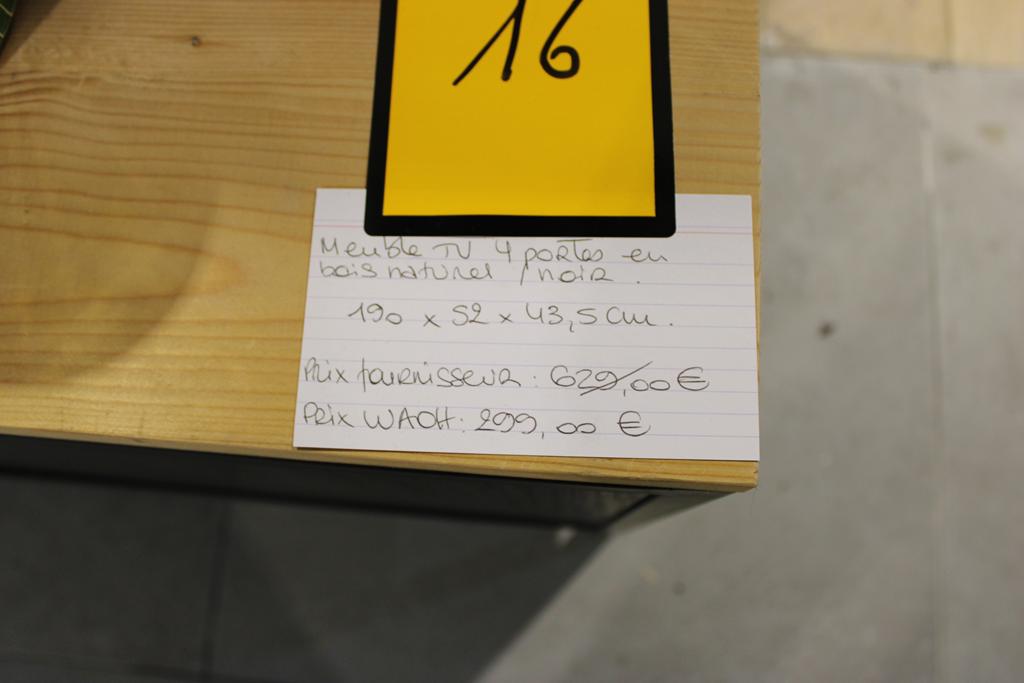 16
Meuble TV 4 portes en
bois naturel / noir.
190 x 52 x 43,5 cm.
Prix fournisseur : 629,00 €
Prix WAOH : 299,00 €